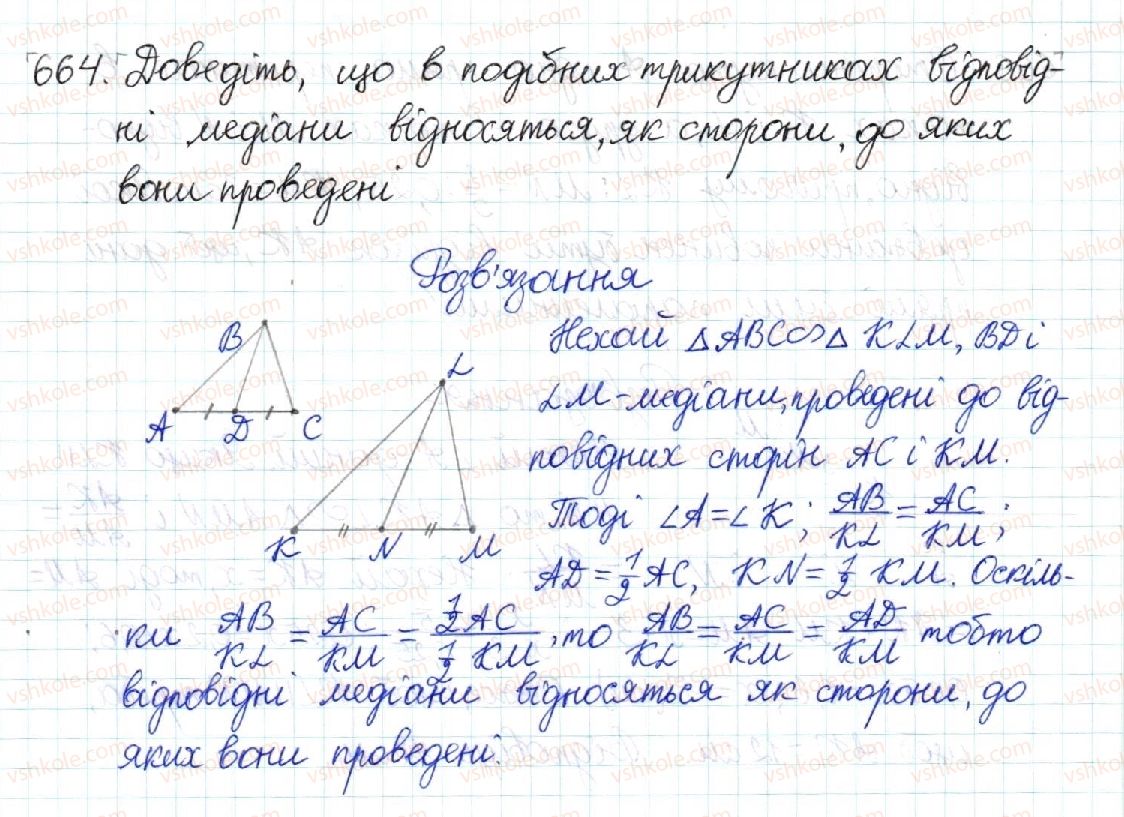 664. Доведіть, що в подібних трикутниках відповід-
ні медіани відносяться, як сторони, до яких
вони проведені
Розв'язання
B
A D C
L
K N M
Нехай △ABC∽△KLM, BD і
LM - медіани, проведені до від-
повідних сторін AC і KM.
Тоді ∠A=∠K; AB/KL = AC/KM;
AD = 1/2 AC, KN = 1/2 KM. Оскіль-
ки AB/KL = AC/KM = 1/2 AC / 1/2 KM, то AB/KL = AC/KM = AD/KM тобто
відповідні медіани відносяться як сторони, до
яких вони проведені.
vshkole.com